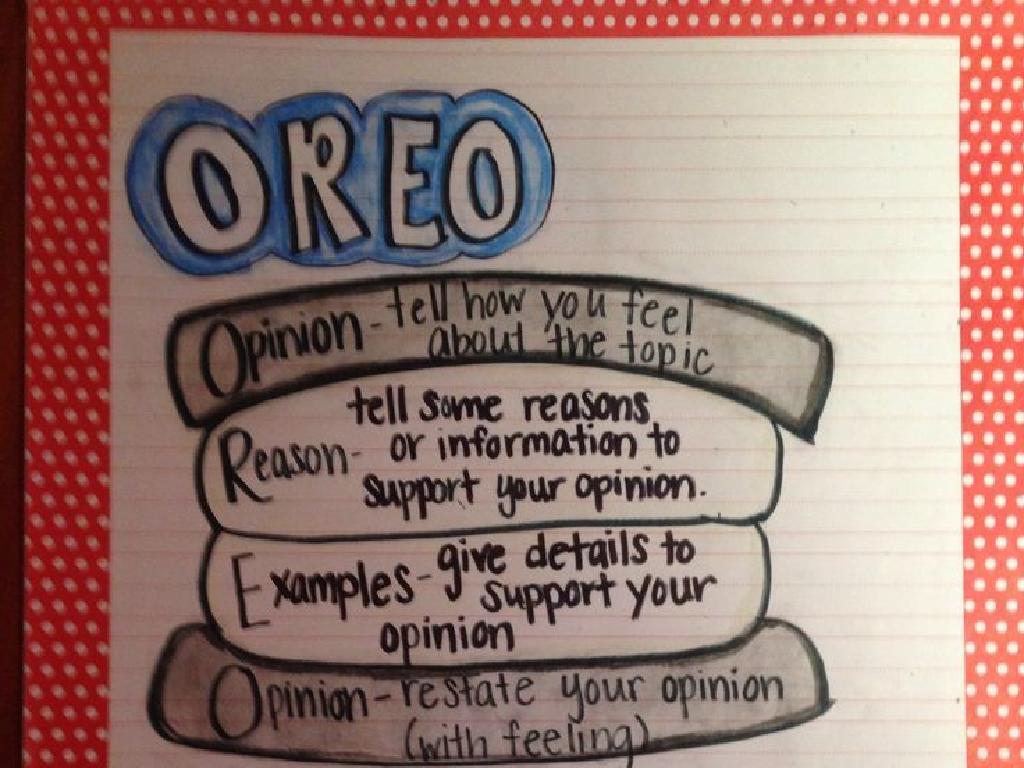 OREO
Opinion - tell how you feel
about the topic
tell some reasons
Reason - or information to
support your opinion.
Examples - give details to
support your
opinion
Opinion - restate your opinion
(with feeling)